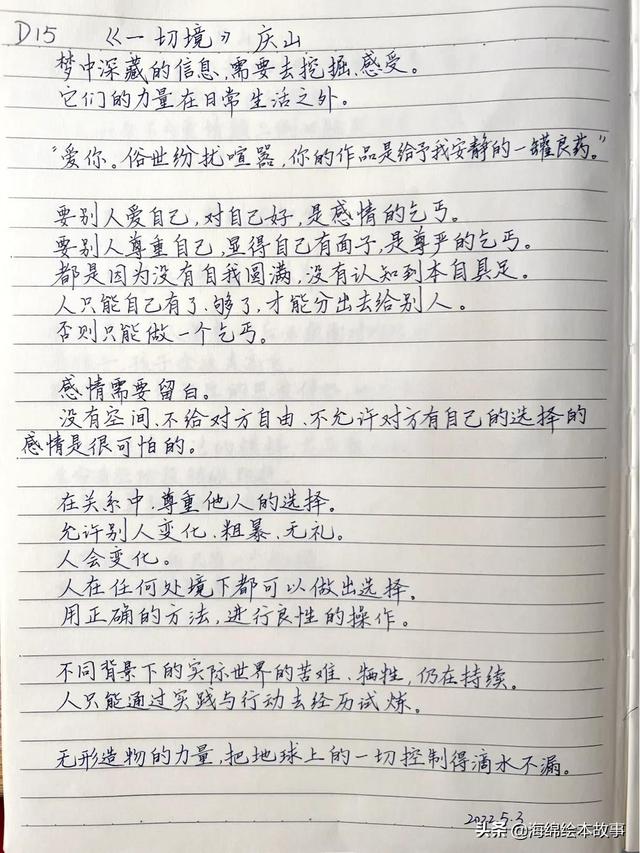 D15 《一切境》 庆山
梦中深藏的信息,需要去挖掘、感受。
它们的力量在日常生活之外。
“爱你。俗世纷扰喧嚣,你的作品是给予我安静的一罐良药。”
要别人爱自己,对自己好,是感情的乞丐。
要别人尊重自己,显得自己有面子,是尊严的乞丐。
都是因为没有自我圆满,没有认知到本自具足。
人只能自己有了、够了,才能分出去给别人。
否则只能做一个乞丐。
感情需要留白。
没有空间、不给对方自由、不允许对方有自己的选择的
感情是很可怕的。
在关系中,尊重他人的选择。
允许别人变化、粗暴、无礼。
人会变化。
人在任何处境下都可以做出选择。
用正确的方法,进行良性的操作。
不同背景下的实际世界的苦难、牺牲,仍在持续。
人只能通过实践与行动去经历试炼。
无形造物的力量,把地球上的一切控制得滴水不漏。
2022.5.3
头条@海绵绘本故事